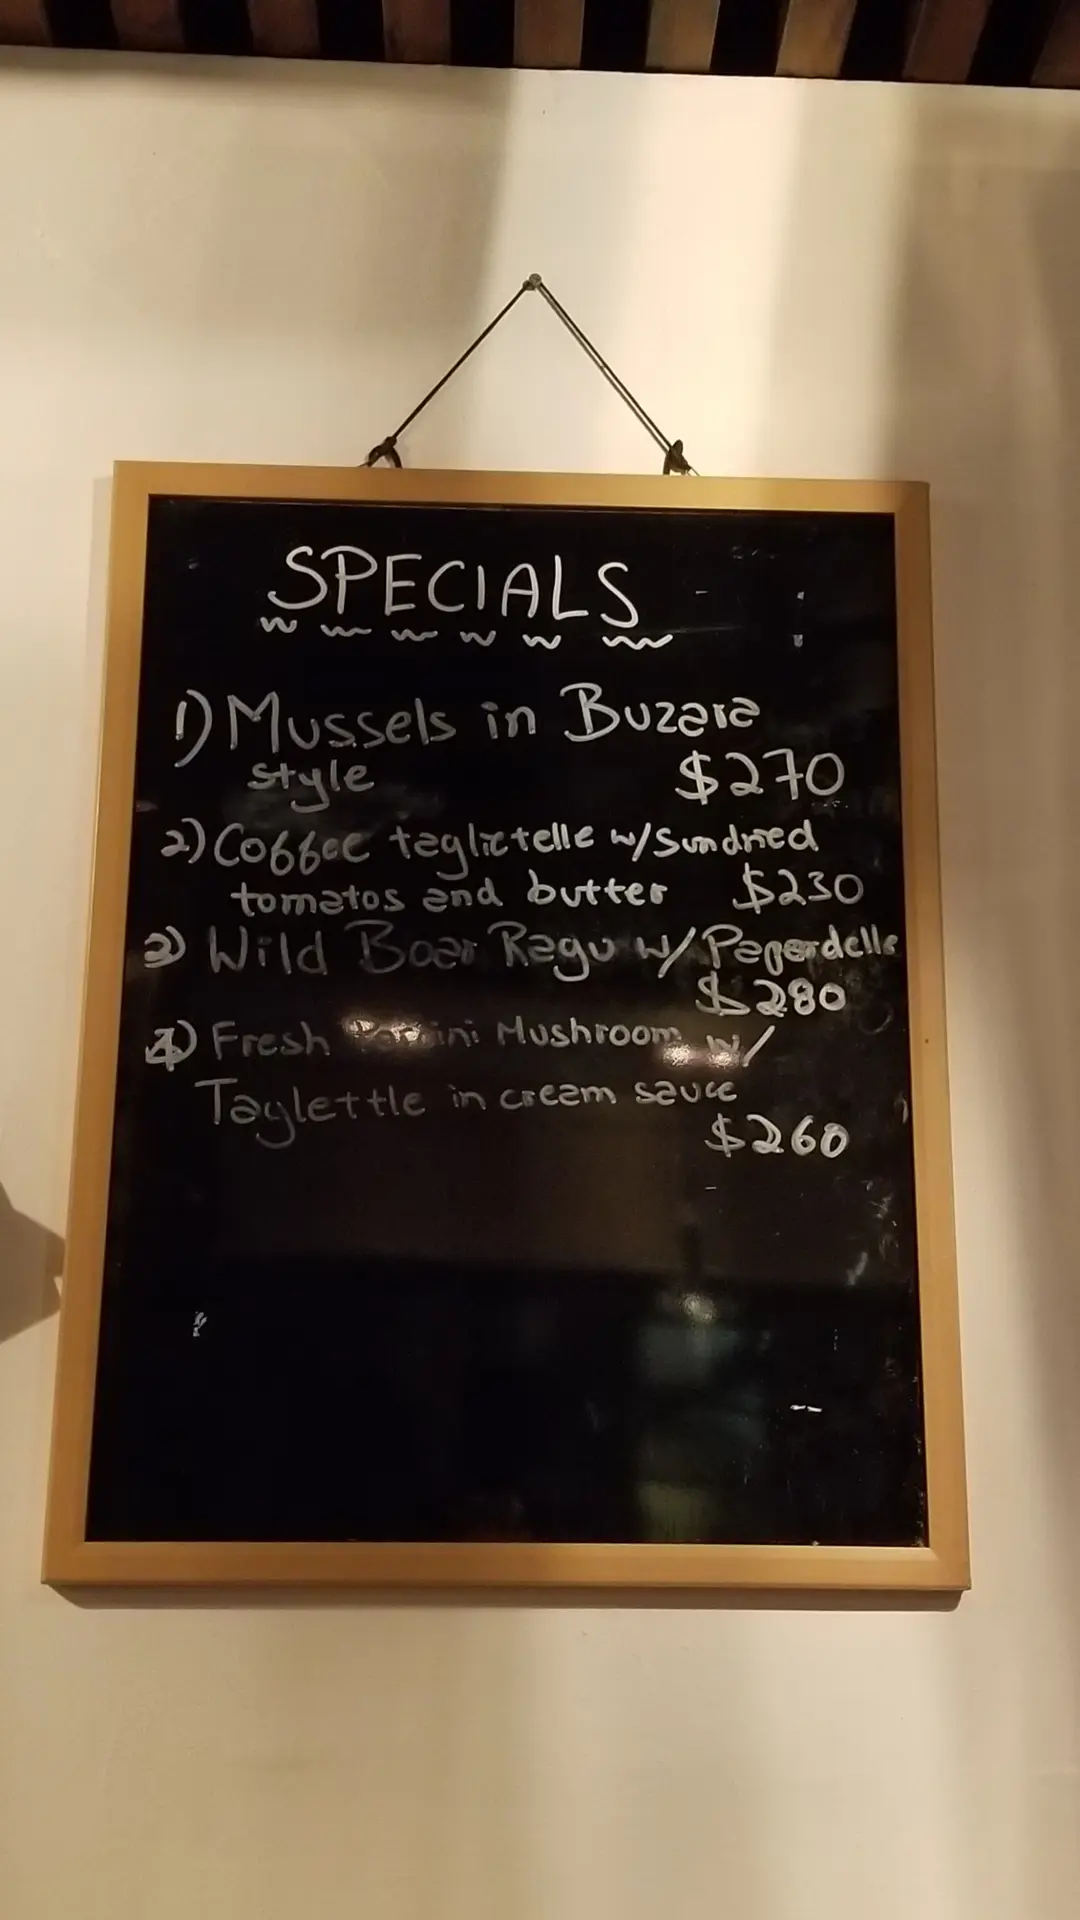 SPECIALS
1) Mussels in Buzara
style $270
2) Coffee taglietelle w/Sundried
tomatos and butter $230
3) Wild Boar Ragu w/ Paperdelle
$280
4) Fresh Porcini Mushroom w/
Taglettle in cream sauce
$260